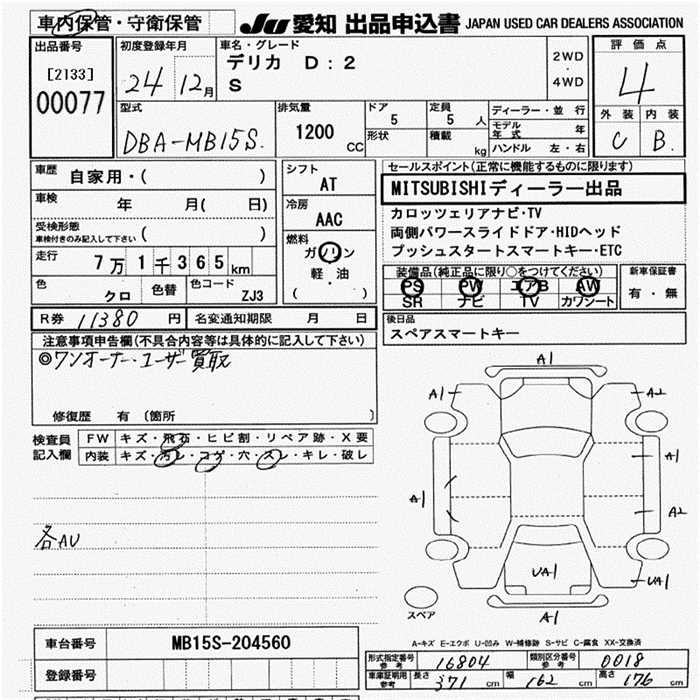 車内保管・守衛保管
JU 愛知 出品申込書 JAPAN USED CAR DEALERS ASSOCIATION
出品番号
[2133]
00077
初度登録年月
24 12月
車名・グレード
デリカ D:2
S
2WD
・
4WD
評価点
4
外装 内装
C B.
型式
DBA-MB15S.
排気量
1200 CC
ドア
5
定員
5 人
形状
積載
kg
ディーラー・並行
モデル年式 年
ハンドル 左・右
車歴
自家用・( )
車検
年 月( 日)
受検形態
車検付きのみ記入して下さい ( )
走行
7万1千365km
色
クロ
色替
色コード
ZJ3
シフト
AT
冷房
AAC
燃料
ガソリン
軽・油
( )
セールスポイント(正常に機能するものに限ります)
MITSUBISHIディーラー出品
カロッツェリアナビ・TV
両側パワースライドドア・HIDヘッド
プッシュスタートスマートキー・ETC
装備品(純正品に限り○をつけてください)
PS PW エアB AW
SR ナビ TV カワシート
新車保証書
有・無
R券 11380 円
名変通知期限 月 日
後日品
スペアスマートキー
注意事項申告欄(不具合内容等は具体的に記入して下さい)
◎ワンオーナー・ユーザー買取
修復歴 有 〔箇所 〕
検査員
記入欄
FW キズ・飛石・ヒビ割・リペア跡・X要
内装 キズ・汚レ・コゲ・穴・スレ・キレ・破レ
各AU
A1
A1 A2
A1 A1
A2
UA1 UA1
A1
スペア
A-キズ E-エクボ U-凹み W-補修跡 S-サビ C-腐食 XX-交換済
車台番号
MB15S-204560
登録番号
形式指定番号
参考
16804
類別区分番号
参考
0018
車庫証明用
参考
長さ 371 cm
幅 162 cm
高さ 176 cm